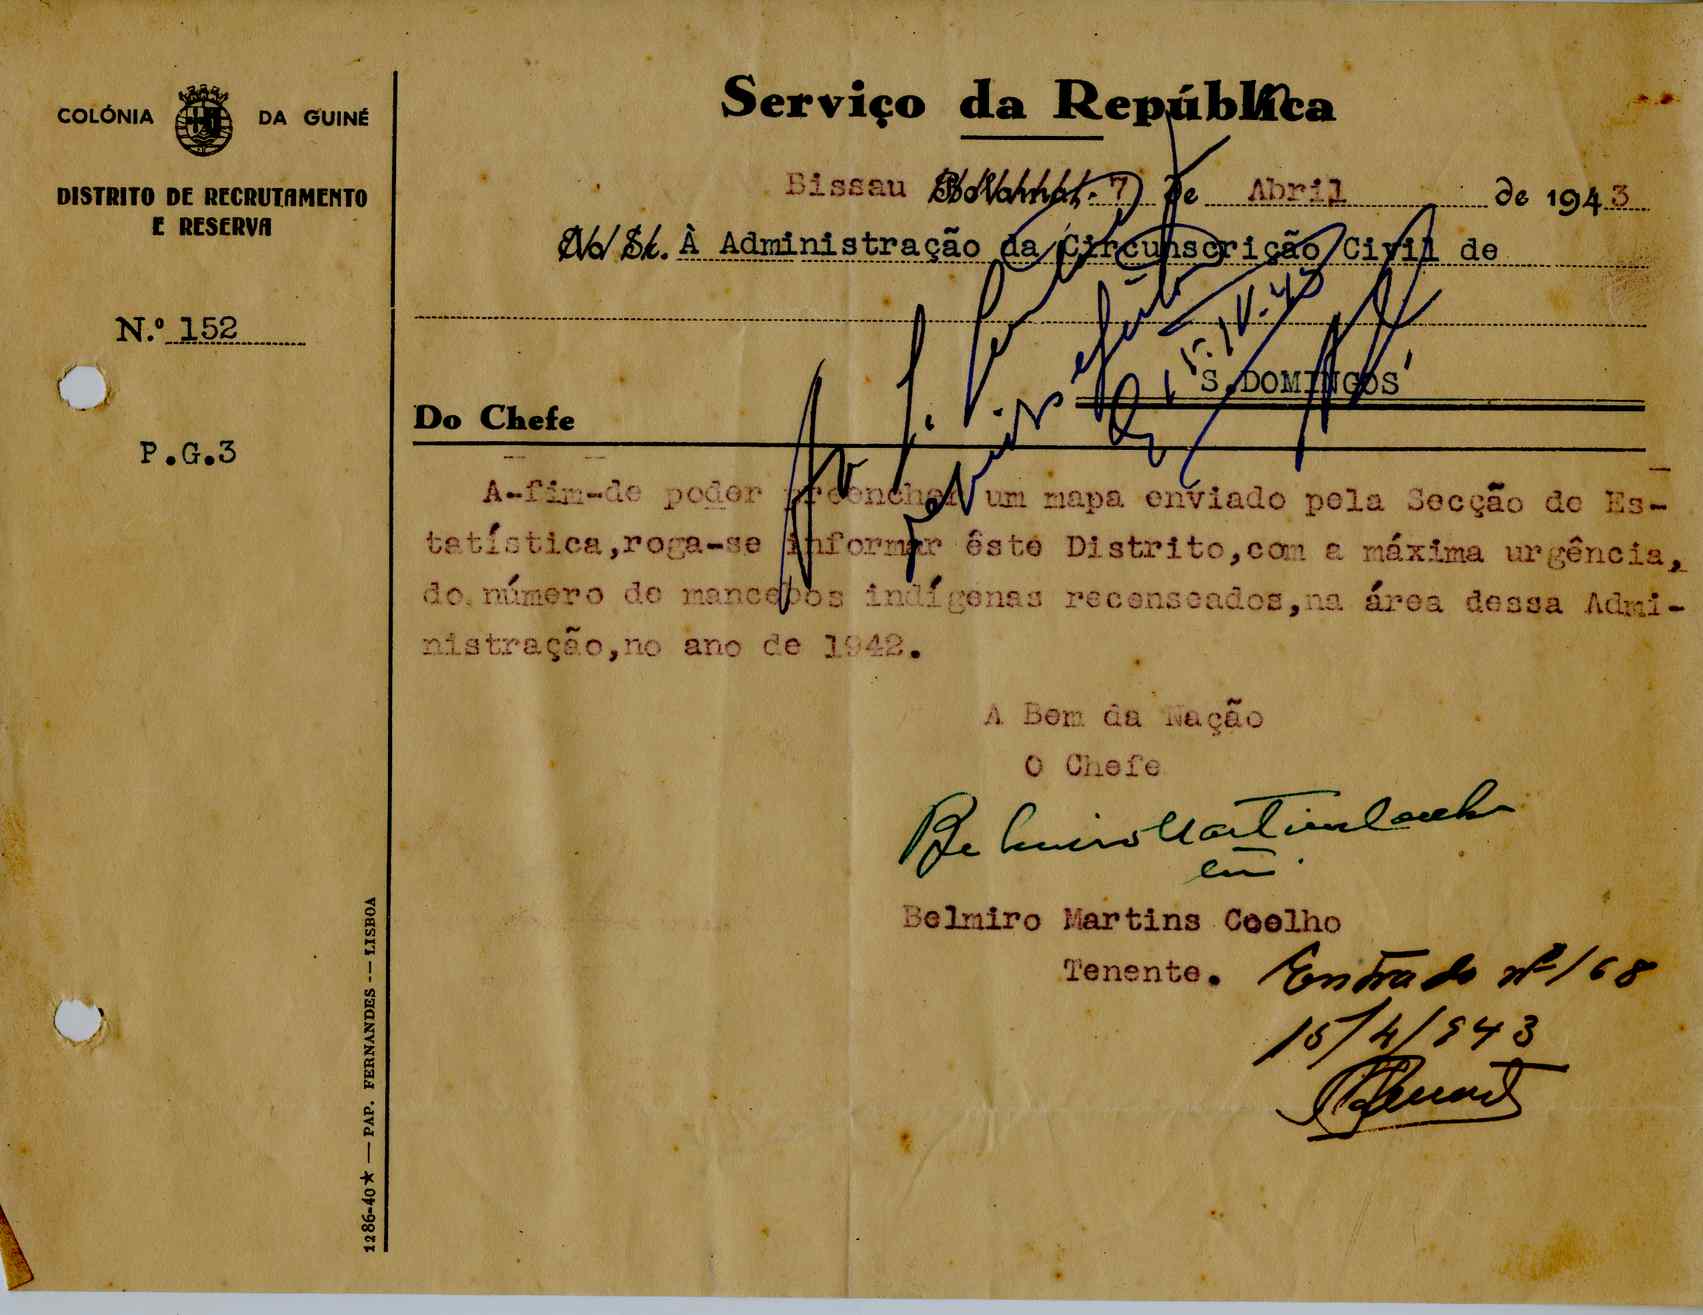 COLÓNIA DA GUINÉ
DISTRITO DE RECRUTAMENTO
E RESERVA
N.º 152
P.G.3
Serviço da República
Bissau Bolama, 7 de Abril de 1943
Ao Sr. À Administração da Circunscrição Civil de
S.DOMINGOS
15-IV-43
Do Chefe
A-fim-de poder preencher um mapa enviado pela Secção de Es-
tatística,roga-se informar êste Distrito,com a máxima urgência,
do número de mancebos indígenas recenseados,na área dessa Admi-
nistração,no ano de 1942.
A Bem da Nação
O Chefe
Belmiro Martins Coelho
Belmiro Martins Coelho
Tenente.
Entrada nº 168
15/4/943
1286-40★ — PAP. FERNANDES -— LISBOA